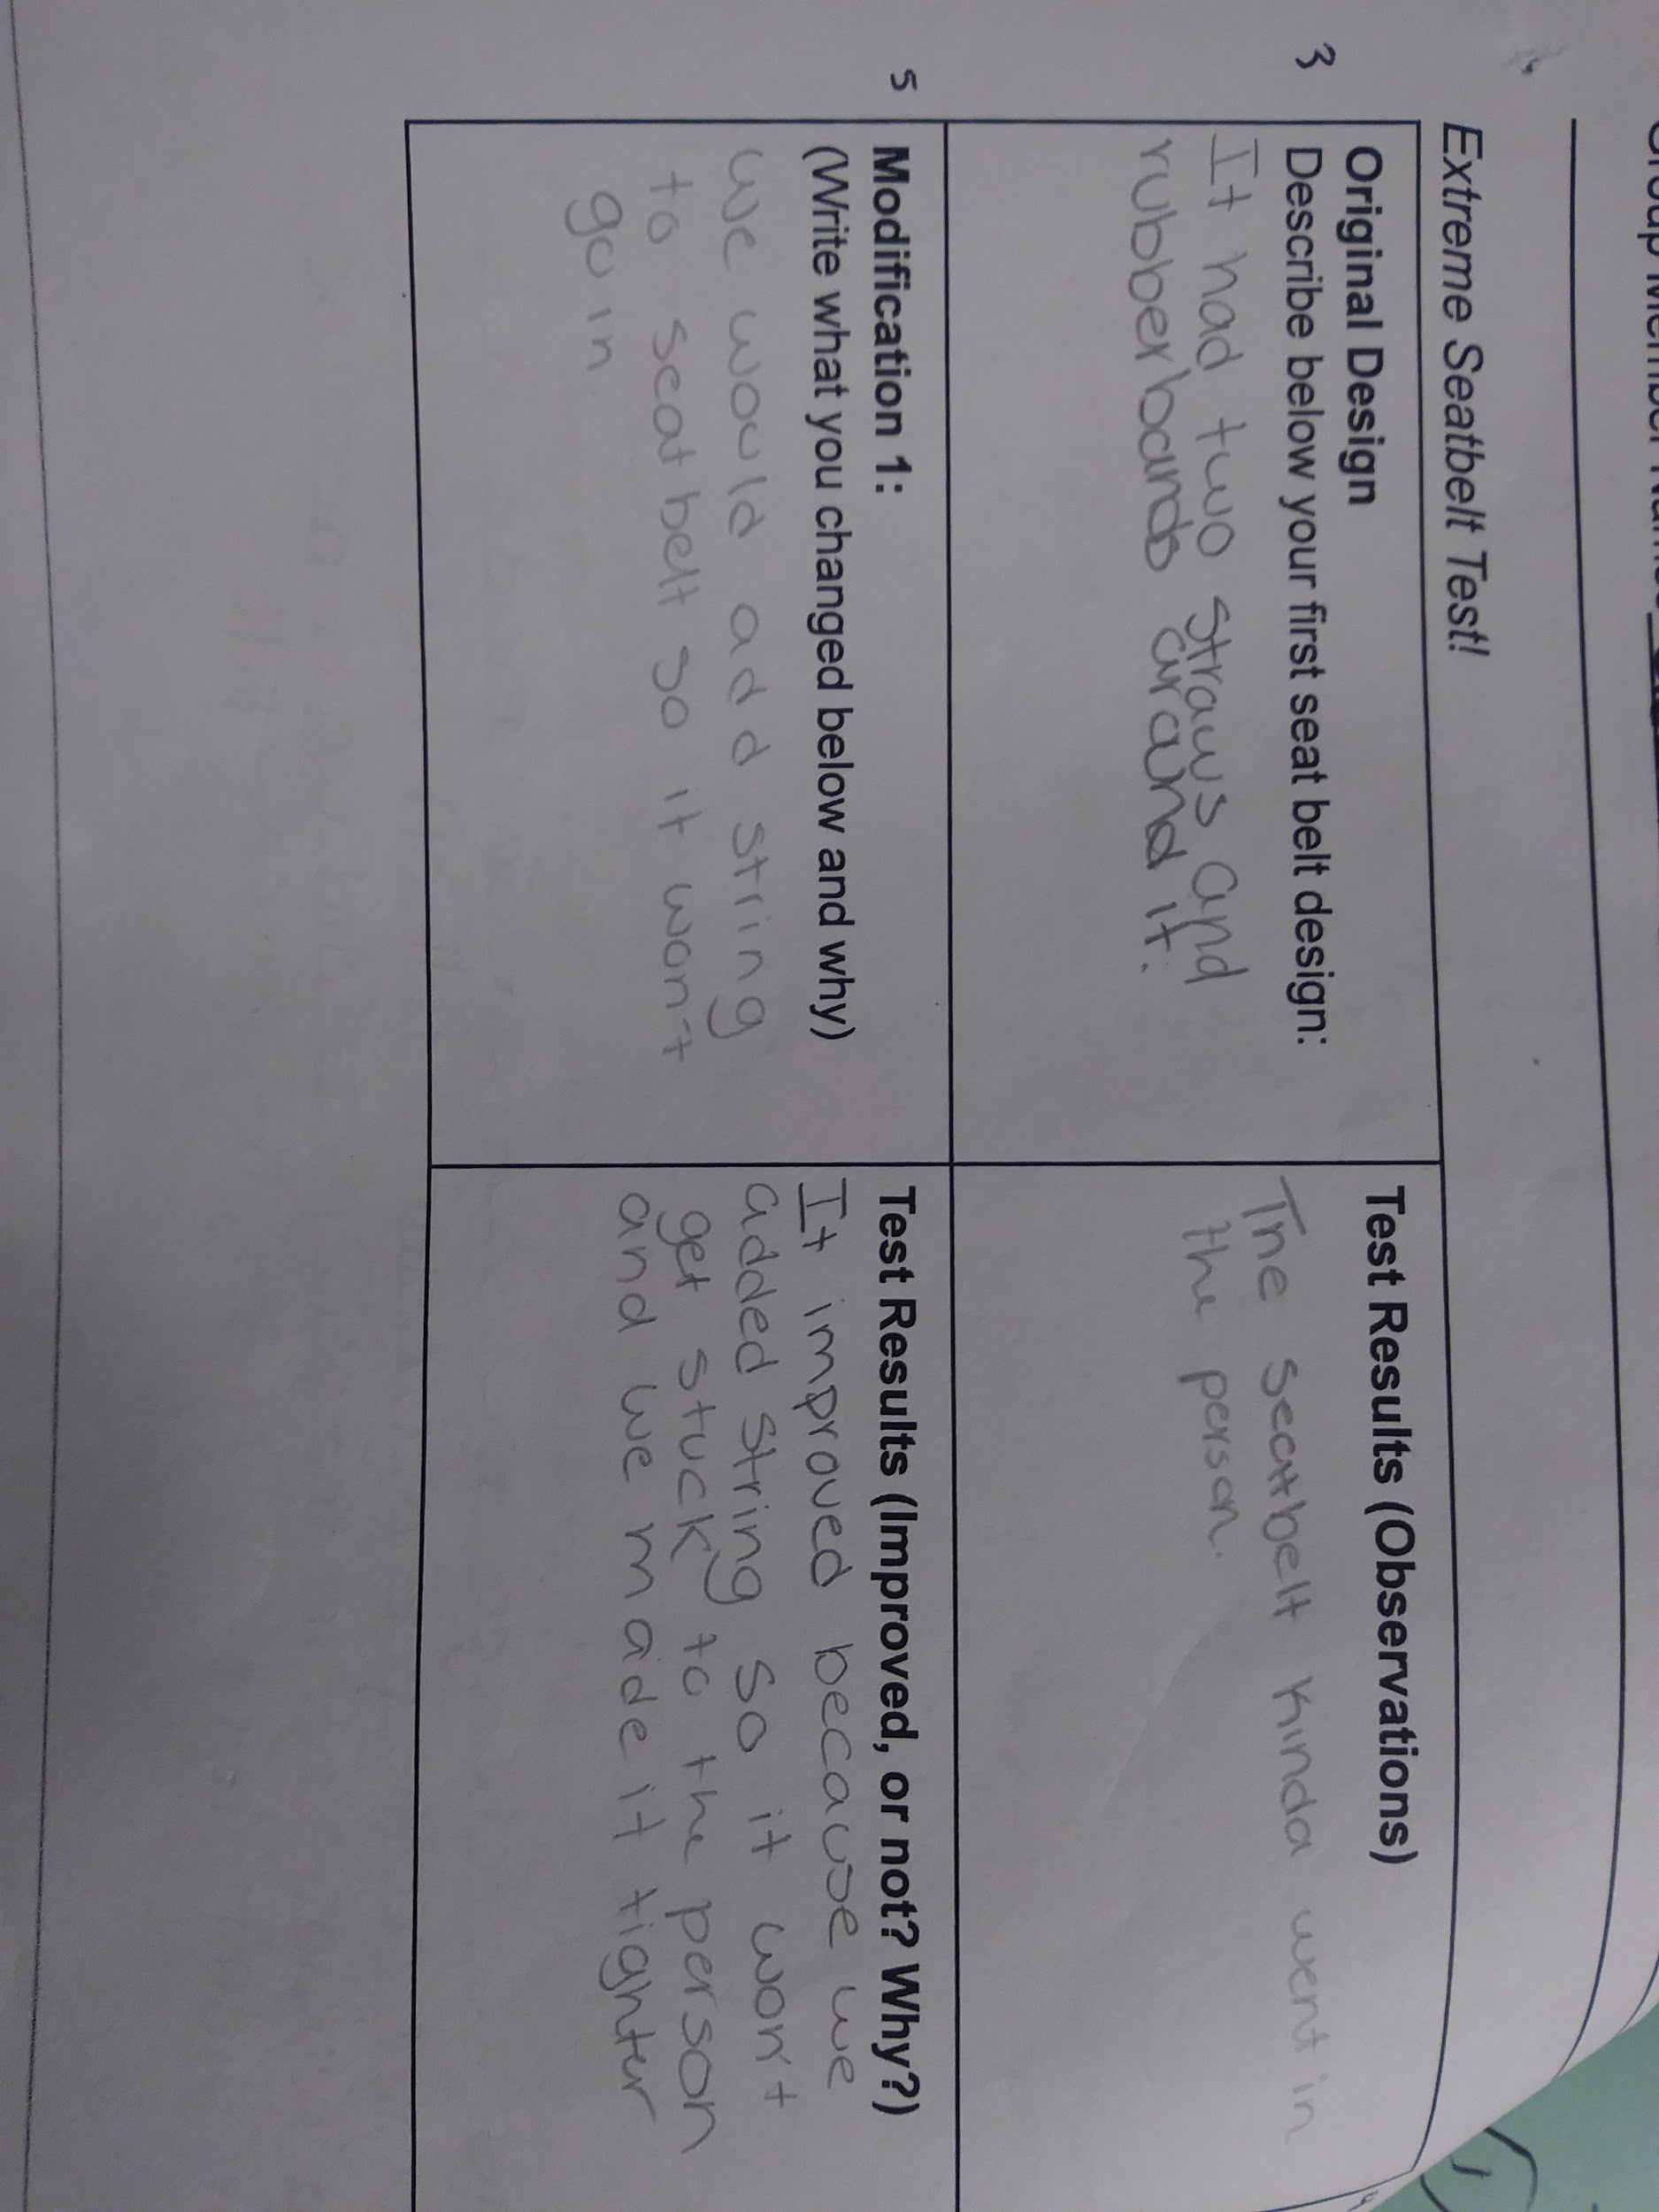 Extreme Seatbelt Test!
3
Original Design
Describe below your first seat belt design:
It had two straws and
rubberbands around it.
Test Results (Observations)
The seatbelt kinda went in
the person.
5
Modification 1:
(Write what you changed below and why)
we would add string
to seat belt so it won't
go in.
Test Results (Improved, or not? Why?)
It improved because we
added string so it won't
get stuck to the person
and we made it tighter